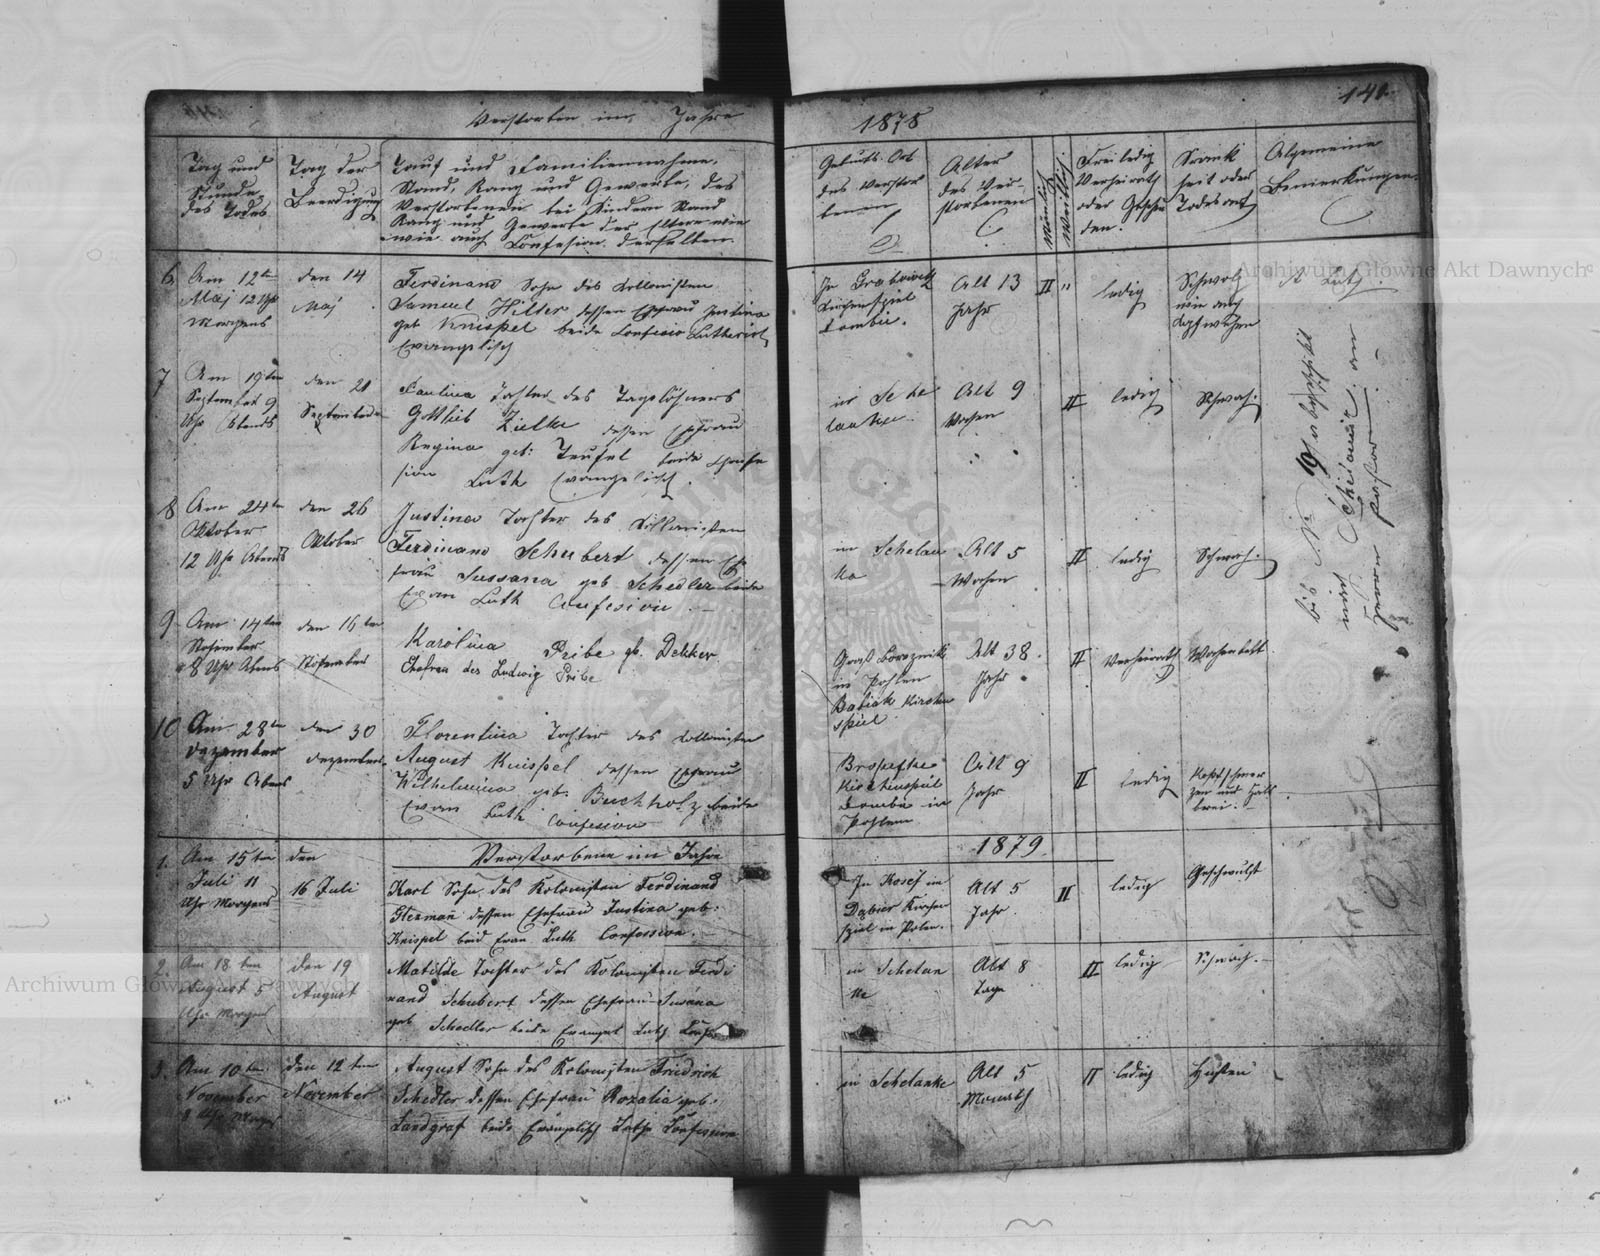 Verstorben im Jahre 1878
140.
Tag und
Stunde
des Todes
Tag der
Beerdigung
Tauf und Familiennahme,
Stand, Rang und Gewerbe, des
Verstorbenen bei Kindern Stand
Rang und Gewerbe der Eltern wie
wie auch Confesion derselben.
Geburts Ort
des Verstor
benen
Alter
des Ver-
storbenen
mänlich
weiblich
Frei ledig
Verheirath
oder Geschie
den.
Krank
heit oder
Todesart
Algemeine
Bemerkungen.
6. Am 12ten
Maj 12 Uhr
Morgens
den 14
Maj
Ferdinand Sohn des Collonisten
Samuel Hilter dessen Ehefrau Justina
geb Knispel beide Confesion Lutherisch
Evangelisch
In Grabowetz
Kirchenspiel
Dombie.
Alt 13
Jahr
II "
ledig
7 Am 19ten
September 9
Uhr Abends
den 21
September
Paulina Tochter des Taglöhners
Gottlieb Zielke dessen Ehefrau
Regina geb: Teufel beide Confe
sion Luth Evangelisch.
in Sche
lanke
Alt 9
Wochen
II
ledig
Schwach.
8 Am 24ten
Oktober
12 Uhr Abends
den 26
Oktober
Justina Tochter des Collonisten
Ferdinand Schubert dessen Ehe
frau Sussana geb Schedler beide
Evan Luth Confesion
in Schelan
ka
Alt 5
Wochen
II
ledig
Schwach.
9 Am 14ten
November
8 Uhr Abens
den 16ten
November
Karolina Pribe gb. Dekker
Ehefrau des Ludwig Pribe
in Pohlen
Babiak Kirchen
spiel
Alt 38.
Jahr
II
Verheirath
Wochenbett
10 Am 28ten
Dezember
5 Uhr Abens
den 30
Dezember
Florentina Tochter des Collonisten
August Knispel dessen Ehefrau
Wilhelmina geb: Buchholz beide
Evan Luth Confesion
Kirchenspiel
Dombie in
Pohlen
Alt 9
Jahr
II
ledig
Kopfschmer
zen und Hals
Verstorbene im Jahre 1879.
1. Am 15ten
Juli 11
Uhr Morgens
den
16 Juli
Karl Sohn des Kolonisten Ferdinand
dessen Ehefrau Justina geb:
Knispel beid Evan Luth Confession.
In Kosef im
Dąbier Kirchen
spiel in Polen.
Alt 5
Jahr.
II
ledig
Geschwulst
2. Am 18ten
August 5
Uhr Morgens
den 19
August
Matilde Tochter des Kolonisten Ferdi
nand Schubert dessen Ehefrau Susana
geb Schedler beide Evangel Luth
in Schelan
ke
Alt 8
Tage
II
ledig
Schwach.
3. Am 10ten
November
8 Uhr Morgens
den 12ten
November
August Sohn des Kolonisten Friedrich
Schedler dessen Ehefrau Rozalia geb.
Landgraf beide Evangelisch Luthe Confession
in Schelanke
Alt 5
Monath
II
ledig
Husten
Herrn Pastor
Archiwum Główne Akt Dawnych
Archiwum Główne Akt Dawnych